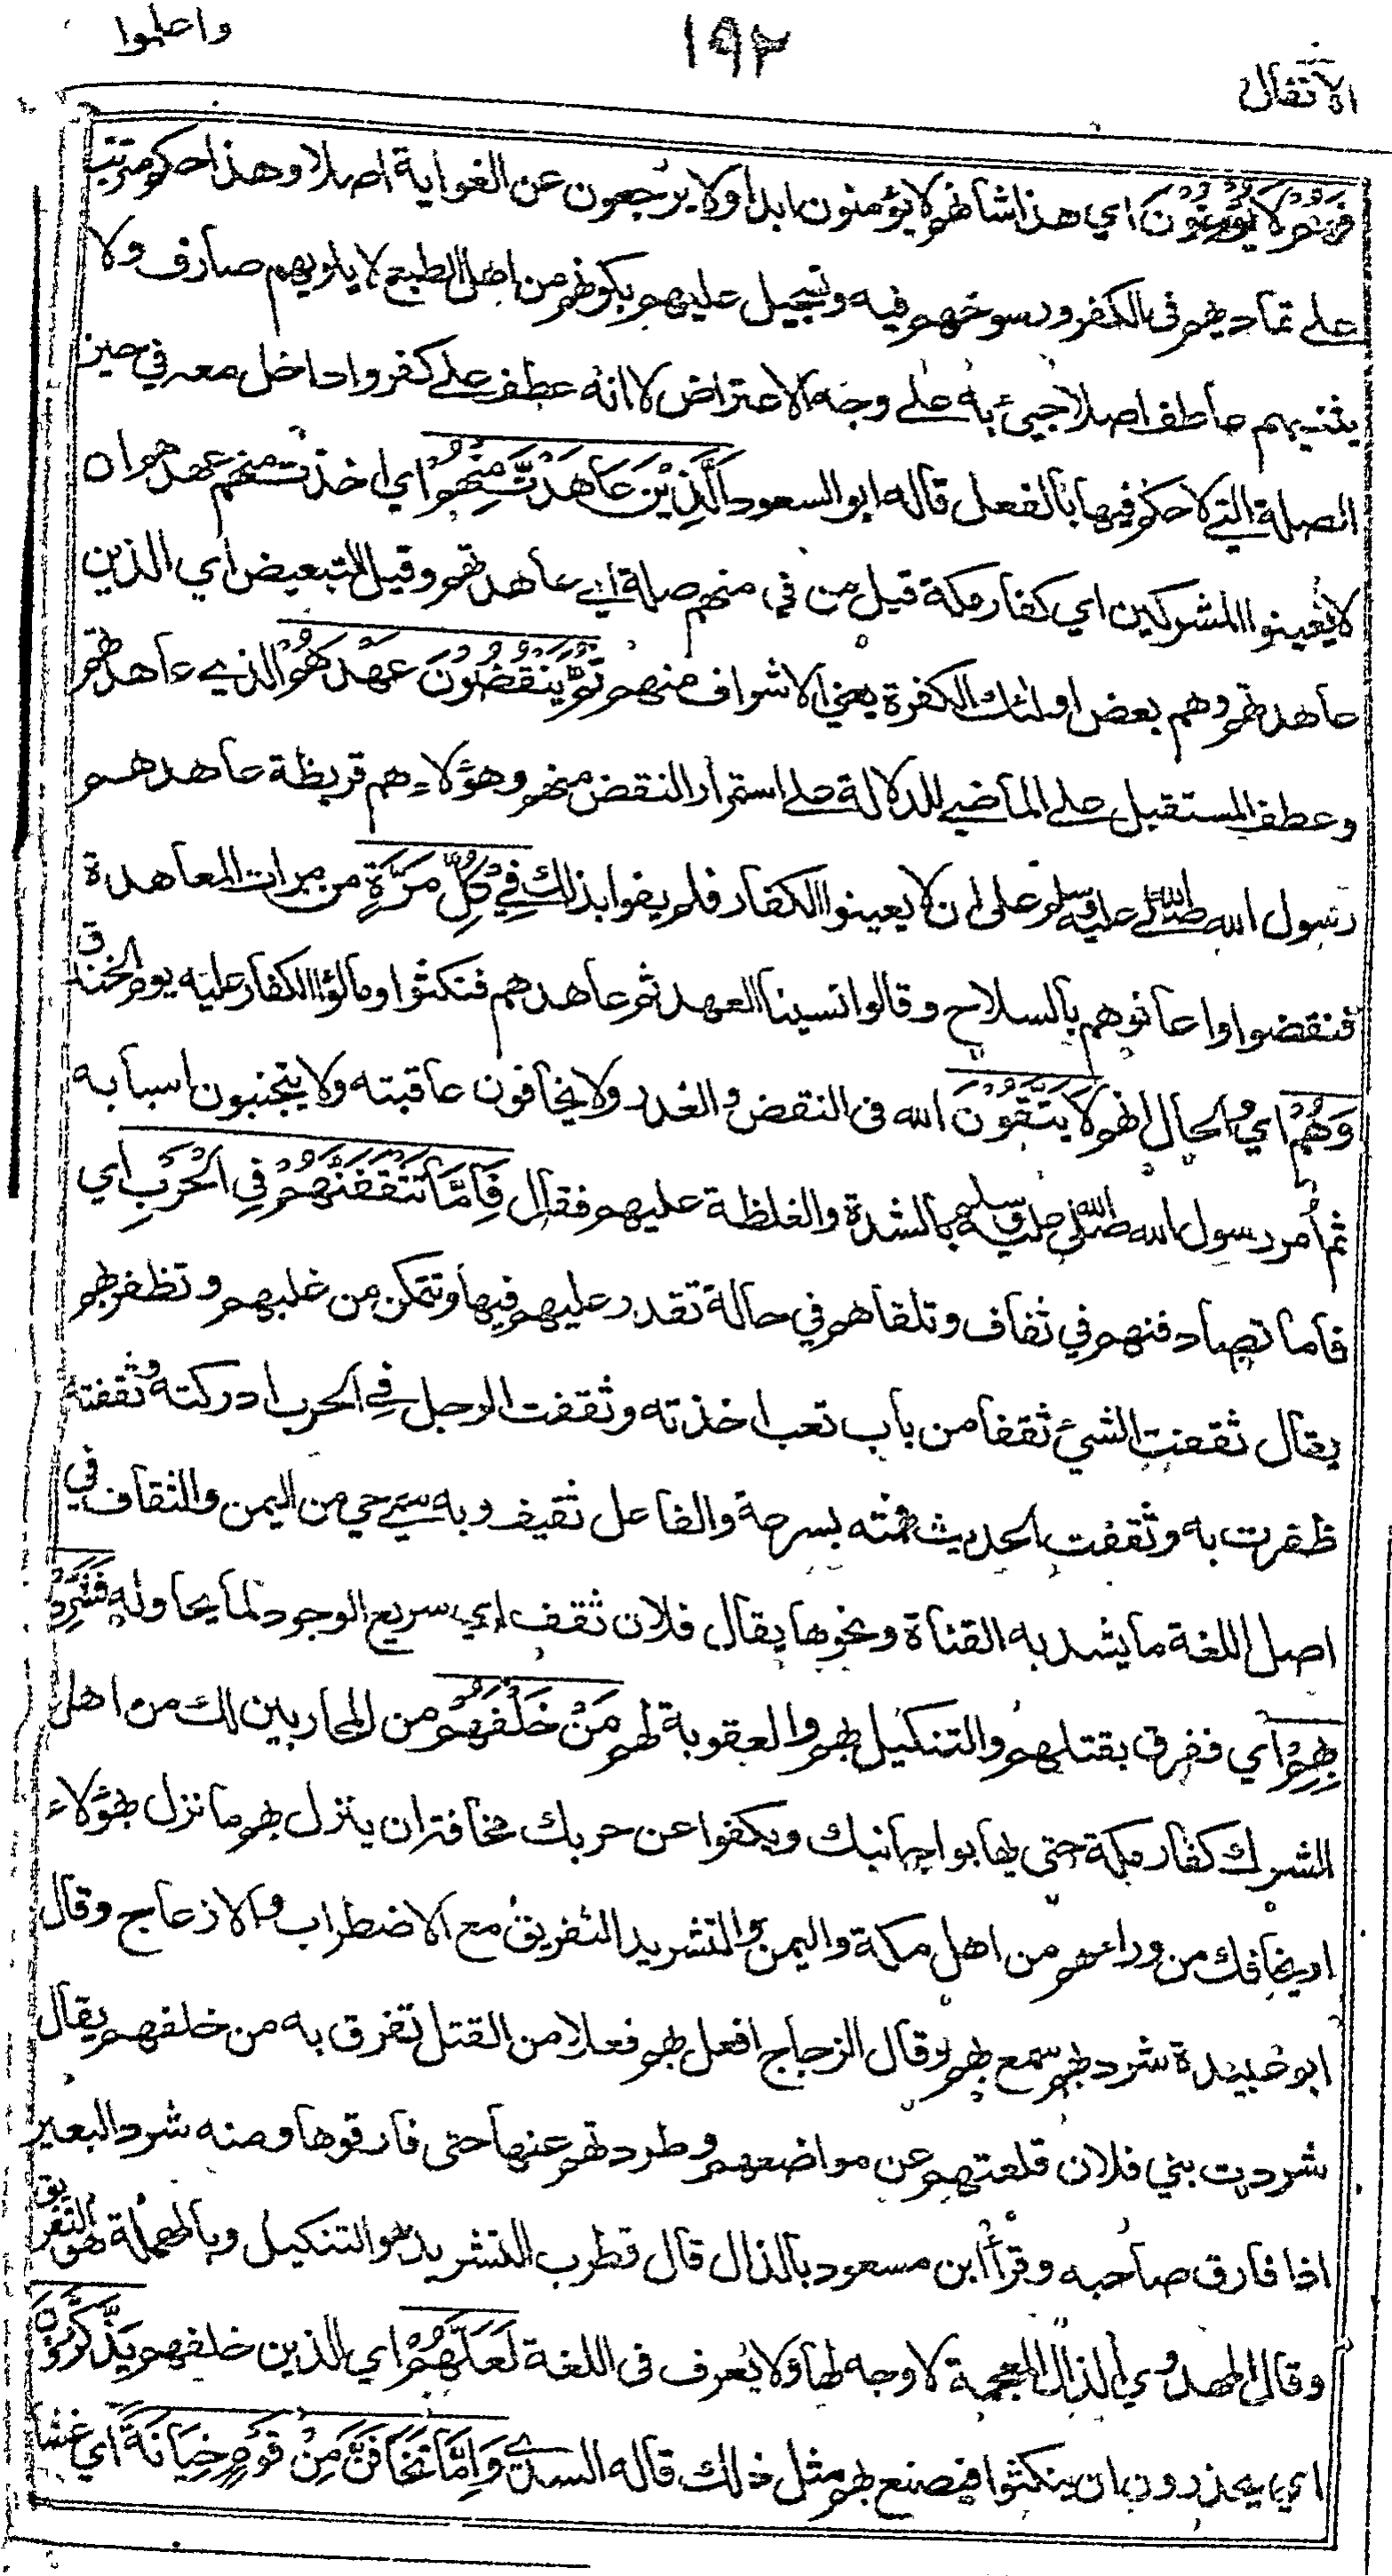 واعلموا
١٩٢
الانفال
فهم لا يؤمنون اي هذا شانهم لا يؤمنون ابدا ولا يرجعون عن الغواية اصلا وهذا حكم مترتب
على تماديهم في الكفر ورسوخهم فيه وتسجيل عليهم بكونهم من اهل الطبع لا يلويهم صارف ولا
يثنيهم عاطف اصلا جيئ به على وجه الاعتراض لا انه عطف على كفروا داخل معه في حيز
الصلة التي لا حكم فيها بالفعل قاله ابو السعود اَلَّذِيْنَ عَاهَدْتَّ مِنْهُمْ اي اخذت منهم عهدهم ان
لا يُعينوا المشركين اي كفار مكة قيل من في منهم صلة اي عاهدتهم وقيل للتبعيض اي الذين
عاهدتهم وهم بعض اولئك الكفرة يعني الاشراف منهم ثُمَّ يَنْقُضُوْنَ عَهْدَهُمْ الذي عاهدتهم
وعطف المستقبل على الماضي للدلالة على استمرار النقض منهم وهؤلاء هم قريظة عاهدهم
رسول الله صلى الله عليه وسلم على ان لا يعينوا الكفار فلم يفوا بذلك فِيْ كُلِّ مَرَّةٍ من مرات المعاهدة
فنقضوا واعانوهم بالسلاح وقالوا نسينا العهد ثم عاهدهم فنكثوا ومالؤا الكفار عليه يوم الخندق
وَهُمْ اي والحال انهم لَا يَتَّقُوْنَ الله في النقض والغدر ولا يخافون عاقبته ولا يتجنبون اسبابه
ثم أمر رسول الله صلى الله عليه وسلم بالشدة والغلظة عليهم فقال فَاِمَّا تَثْقَفَنَّهُمْ فِى الْحَرْبِ اي
فاما تصادفنهم في ثقاف وتلقاهم في حالة تقدر عليهم فيها وتتمكن من غلبهم وتظفر بهم
يقال ثقفت الشيء ثقفا من باب تعب اخذته وثقفت الرجل في الحرب ادركته وثقفته
ظفرت به وثقفت الحديث فهمته بسرعة والفاعل ثقيف وبه سمي حي من اليمن والثقاف في
اصل اللغة ما يشد به القناة ونحوها يقال فلان ثقف اي سريع الوجود لما يحاوله فَشَرِّدْ
بِهِمْ اي ففرق بقتلهم والتنكيل بهم والعقوبة لهم مَنْ خَلْفَهُمْ من المحاربين لك من اهل
الشرك كفار مكة حتى يهابوا جانبك ويكفوا عن حربك مخافة ان ينزل بهم ما نزل بهؤلاء
او يخافك من وراءهم من اهل مكة واليمن والتشريد التفريق مع الاضطراب والازعاج وقال
ابو عبيدة شرد بهم سمع بهم وقال الزجاج افعل بهم فعلا من القتل تفرق به من خلفهم يقال
شردت بني فلان قلعتهم عن مواضعهم وطردتهم عنها حتى فارقوها ومنه شرد البعير
اذا فارق صاحبه وقرأ ابن مسعود بالذال قال قطرب التشريذ هو التنكيل وبالمهملة هو التفريق
وقال المهدوي الذال المعجمة لا وجه لها ولا يُعرف في اللغة لَعَلَّهُمْ اي الذين خلفهم يَذَّكَّرُوْنَ
اي يحذرون ان ينكثوا فيصنع بهم مثل ذلك قاله السدي وَاِمَّا تَخَافَنَّ مِنْ قَوْمٍ خِيَانَةً اي غشا